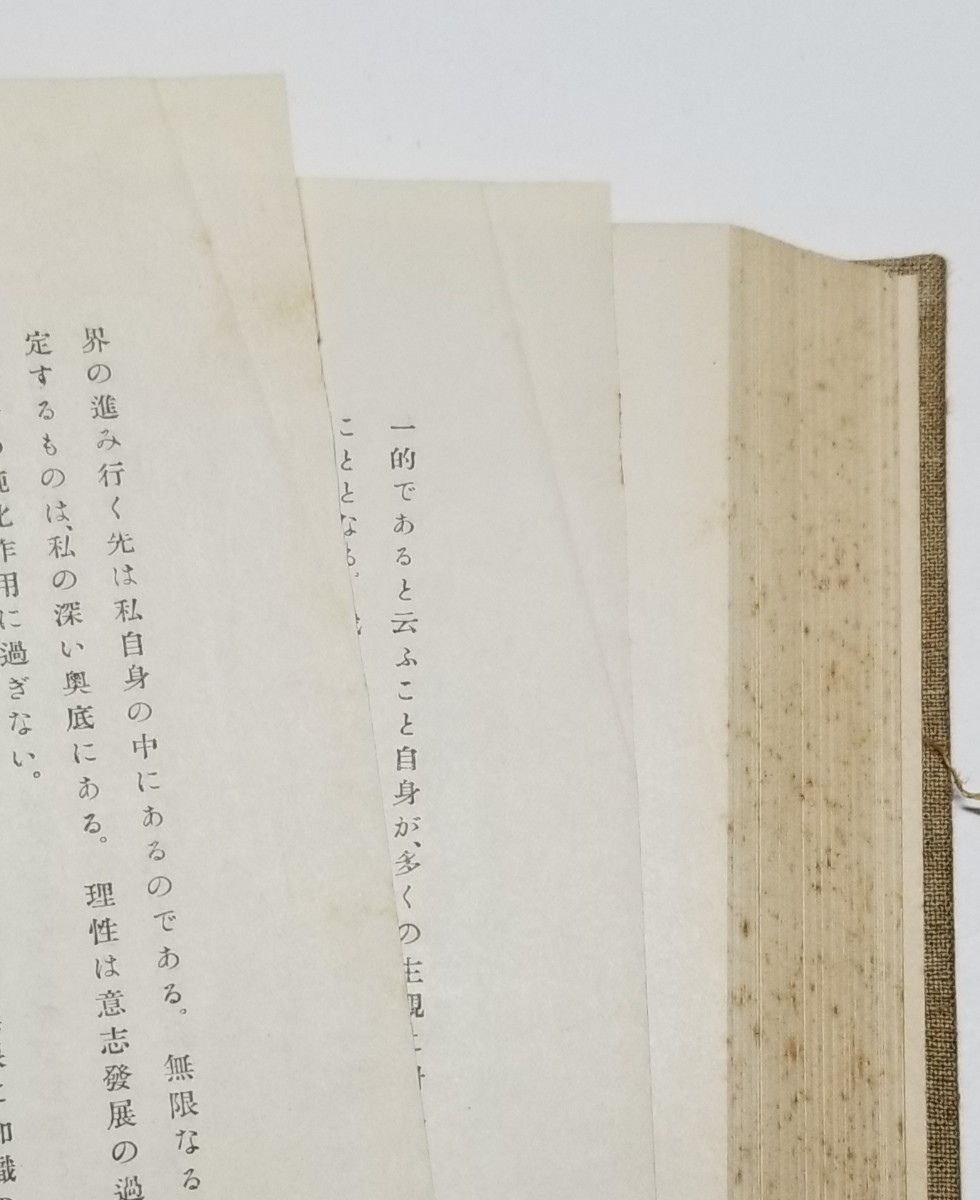 一的であると云ふこと自身が、多くの主観
こととなる。
界の進み行く先は私自身の中にあるのである。無限なる
定するものは、私の深い奥底にある。理性は意志發展の過
純化作用に過ぎない。